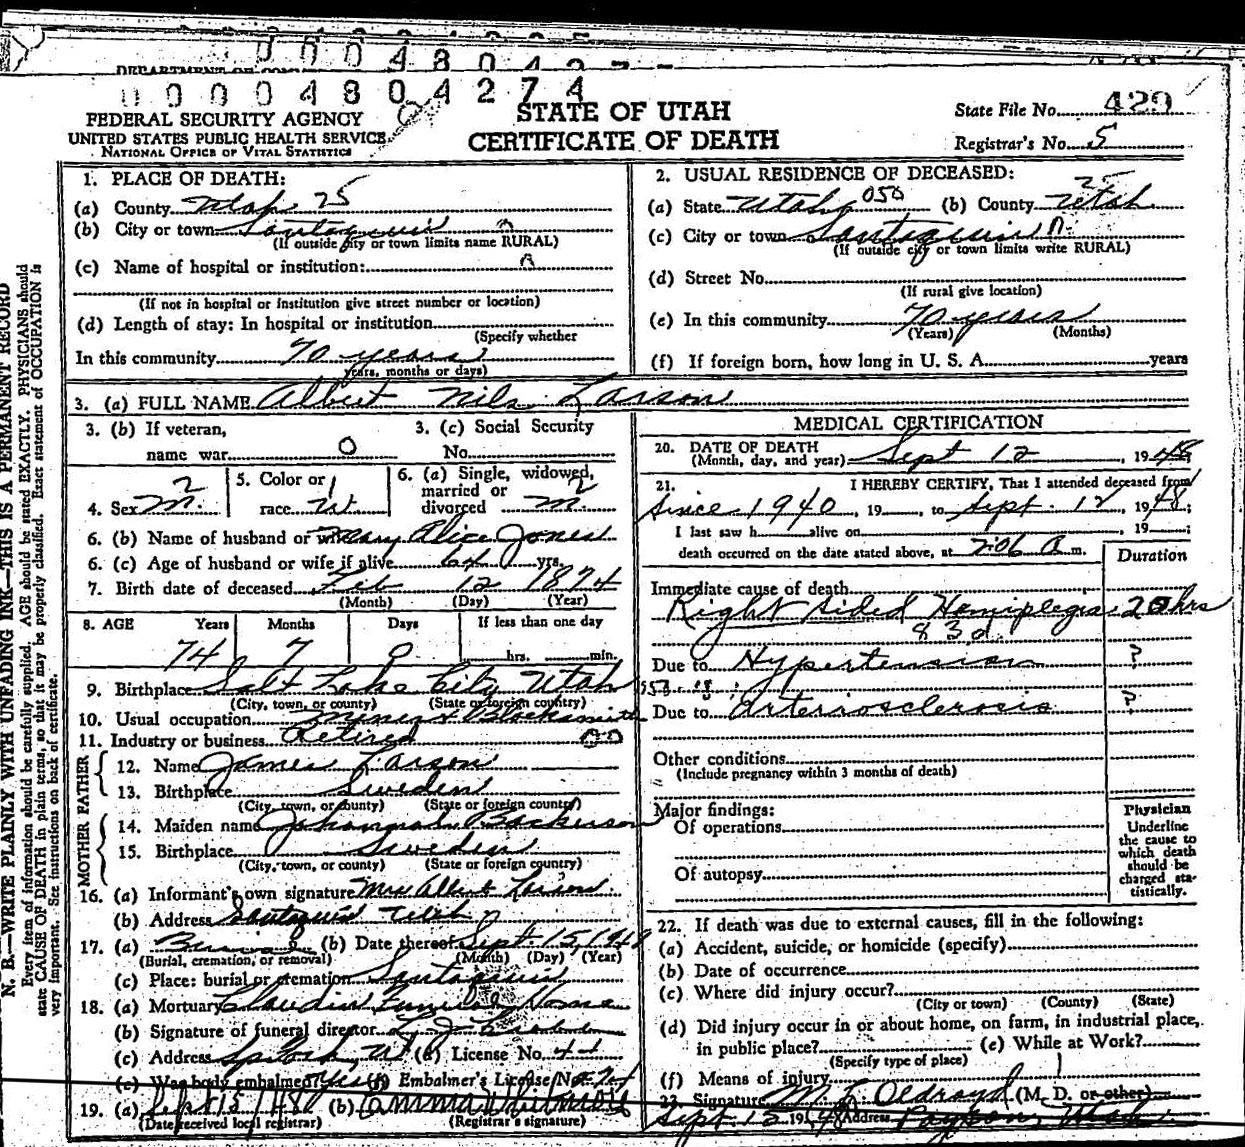 00004804274
FEDERAL SECURITY AGENCY
UNITED STATES PUBLIC HEALTH SERVICE
NATIONAL OFFICE OF VITAL STATISTICS
STATE OF UTAH
CERTIFICATE OF DEATH
State File No. 429
Registrar's No. 5
1. PLACE OF DEATH:
(a) County Utah 25
(b) City or town Santaquin
(If outside city or town limits name RURAL)
(c) Name of hospital or institution:
(If not in hospital or institution give street number or location)
(d) Length of stay: In hospital or institution
(Specify whether
In this community 70 years
years, months or days)
2. USUAL RESIDENCE OF DECEASED:
(a) State Utah 050 (b) County Utah 25
(c) City or town Santaquin
(If outside city or town limits write RURAL)
(d) Street No.
(If rural give location)
(e) In this community 70 years
(Years) (Months)
(f) If foreign born, how long in U. S. A. years
3. (a) FULL NAME Albert Nils Larson
3. (b) If veteran, name war 0
3. (c) Social Security No.
4. Sex M. 2
5. Color or race
6. (a) Single, widowed, married or divorced M. 2
6. (b) Name of husband or wife Mary Alice Jones
6. (c) Age of husband or wife if alive 64 yrs.
7. Birth date of deceased Feb 12 1874
(Month) (Day) (Year)
8. AGE Years Months Days If less than one day
74 7 0 hrs. min.
9. Birthplace Salt Lake City Utah
(City, town, or county) (State or foreign country)
10. Usual occupation Miner & Blacksmith
11. Industry or business Retired
FATHER
12. Name James Larson
13. Birthplace Sweden
(City, town, or county) (State or foreign country)
MOTHER
14. Maiden name Johannah
15. Birthplace Sweden
(City, town, or county) (State or foreign country)
16. (a) Informant's own signature Mrs Albert Larson
(b) Address Santaquin Utah
17. (a) Burial (b) Date thereof Sept. 15, 1948
(Burial, cremation, or removal) (Month) (Day) (Year)
(c) Place: burial or cremation Santaquin
18. (a) Mortuary Claudin Funeral Home
(b) Signature of funeral director
(c) Address (d) License No. 44
(e) Was body embalmed? Yes (f) Embalmer's License No.
19. (a) Sept 15 1948 (b)
(Date received local registrar) (Registrar's signature)
MEDICAL CERTIFICATION
20. DATE OF DEATH
(Month, day, and year) Sept 12, 1948
21. I HEREBY CERTIFY, That I attended deceased from
since 1940, 19 , to Sept. 12, 1948;
I last saw h alive on , 19 ;
death occurred on the date stated above, at 2:06 A m.
Duration
Immediate cause of death
Right Sided Hemiplegia 20 hrs
83d
Due to Hypertension ?
Due to Arteriosclerosis ?
Other conditions
(Include pregnancy within 3 months of death)
Major findings:
Of operations
Of autopsy
Physician
Underline the cause to which death should be charged statistically.
22. If death was due to external causes, fill in the following:
(a) Accident, suicide, or homicide (specify)
(b) Date of occurrence
(c) Where did injury occur?
(City or town) (County) (State)
(d) Did injury occur in or about home, on farm, in industrial place,
in public place? (e) While at Work?
(Specify type of place)
(f) Means of injury
23. Signature M. L. Oldroyd (M. D. or other)
Sept. 15 1948 Address Payson, Utah
N. B.—WRITE PLAINLY WITH UNFADING INK—THIS IS A PERMANENT RECORD
Every item of information should be carefully supplied. AGE should be stated EXACTLY. PHYSICIANS should
state CAUSE OF DEATH in plain terms, so that it may be properly classified. Exact statement of OCCUPATION is
very important. See instructions on back of certificate.